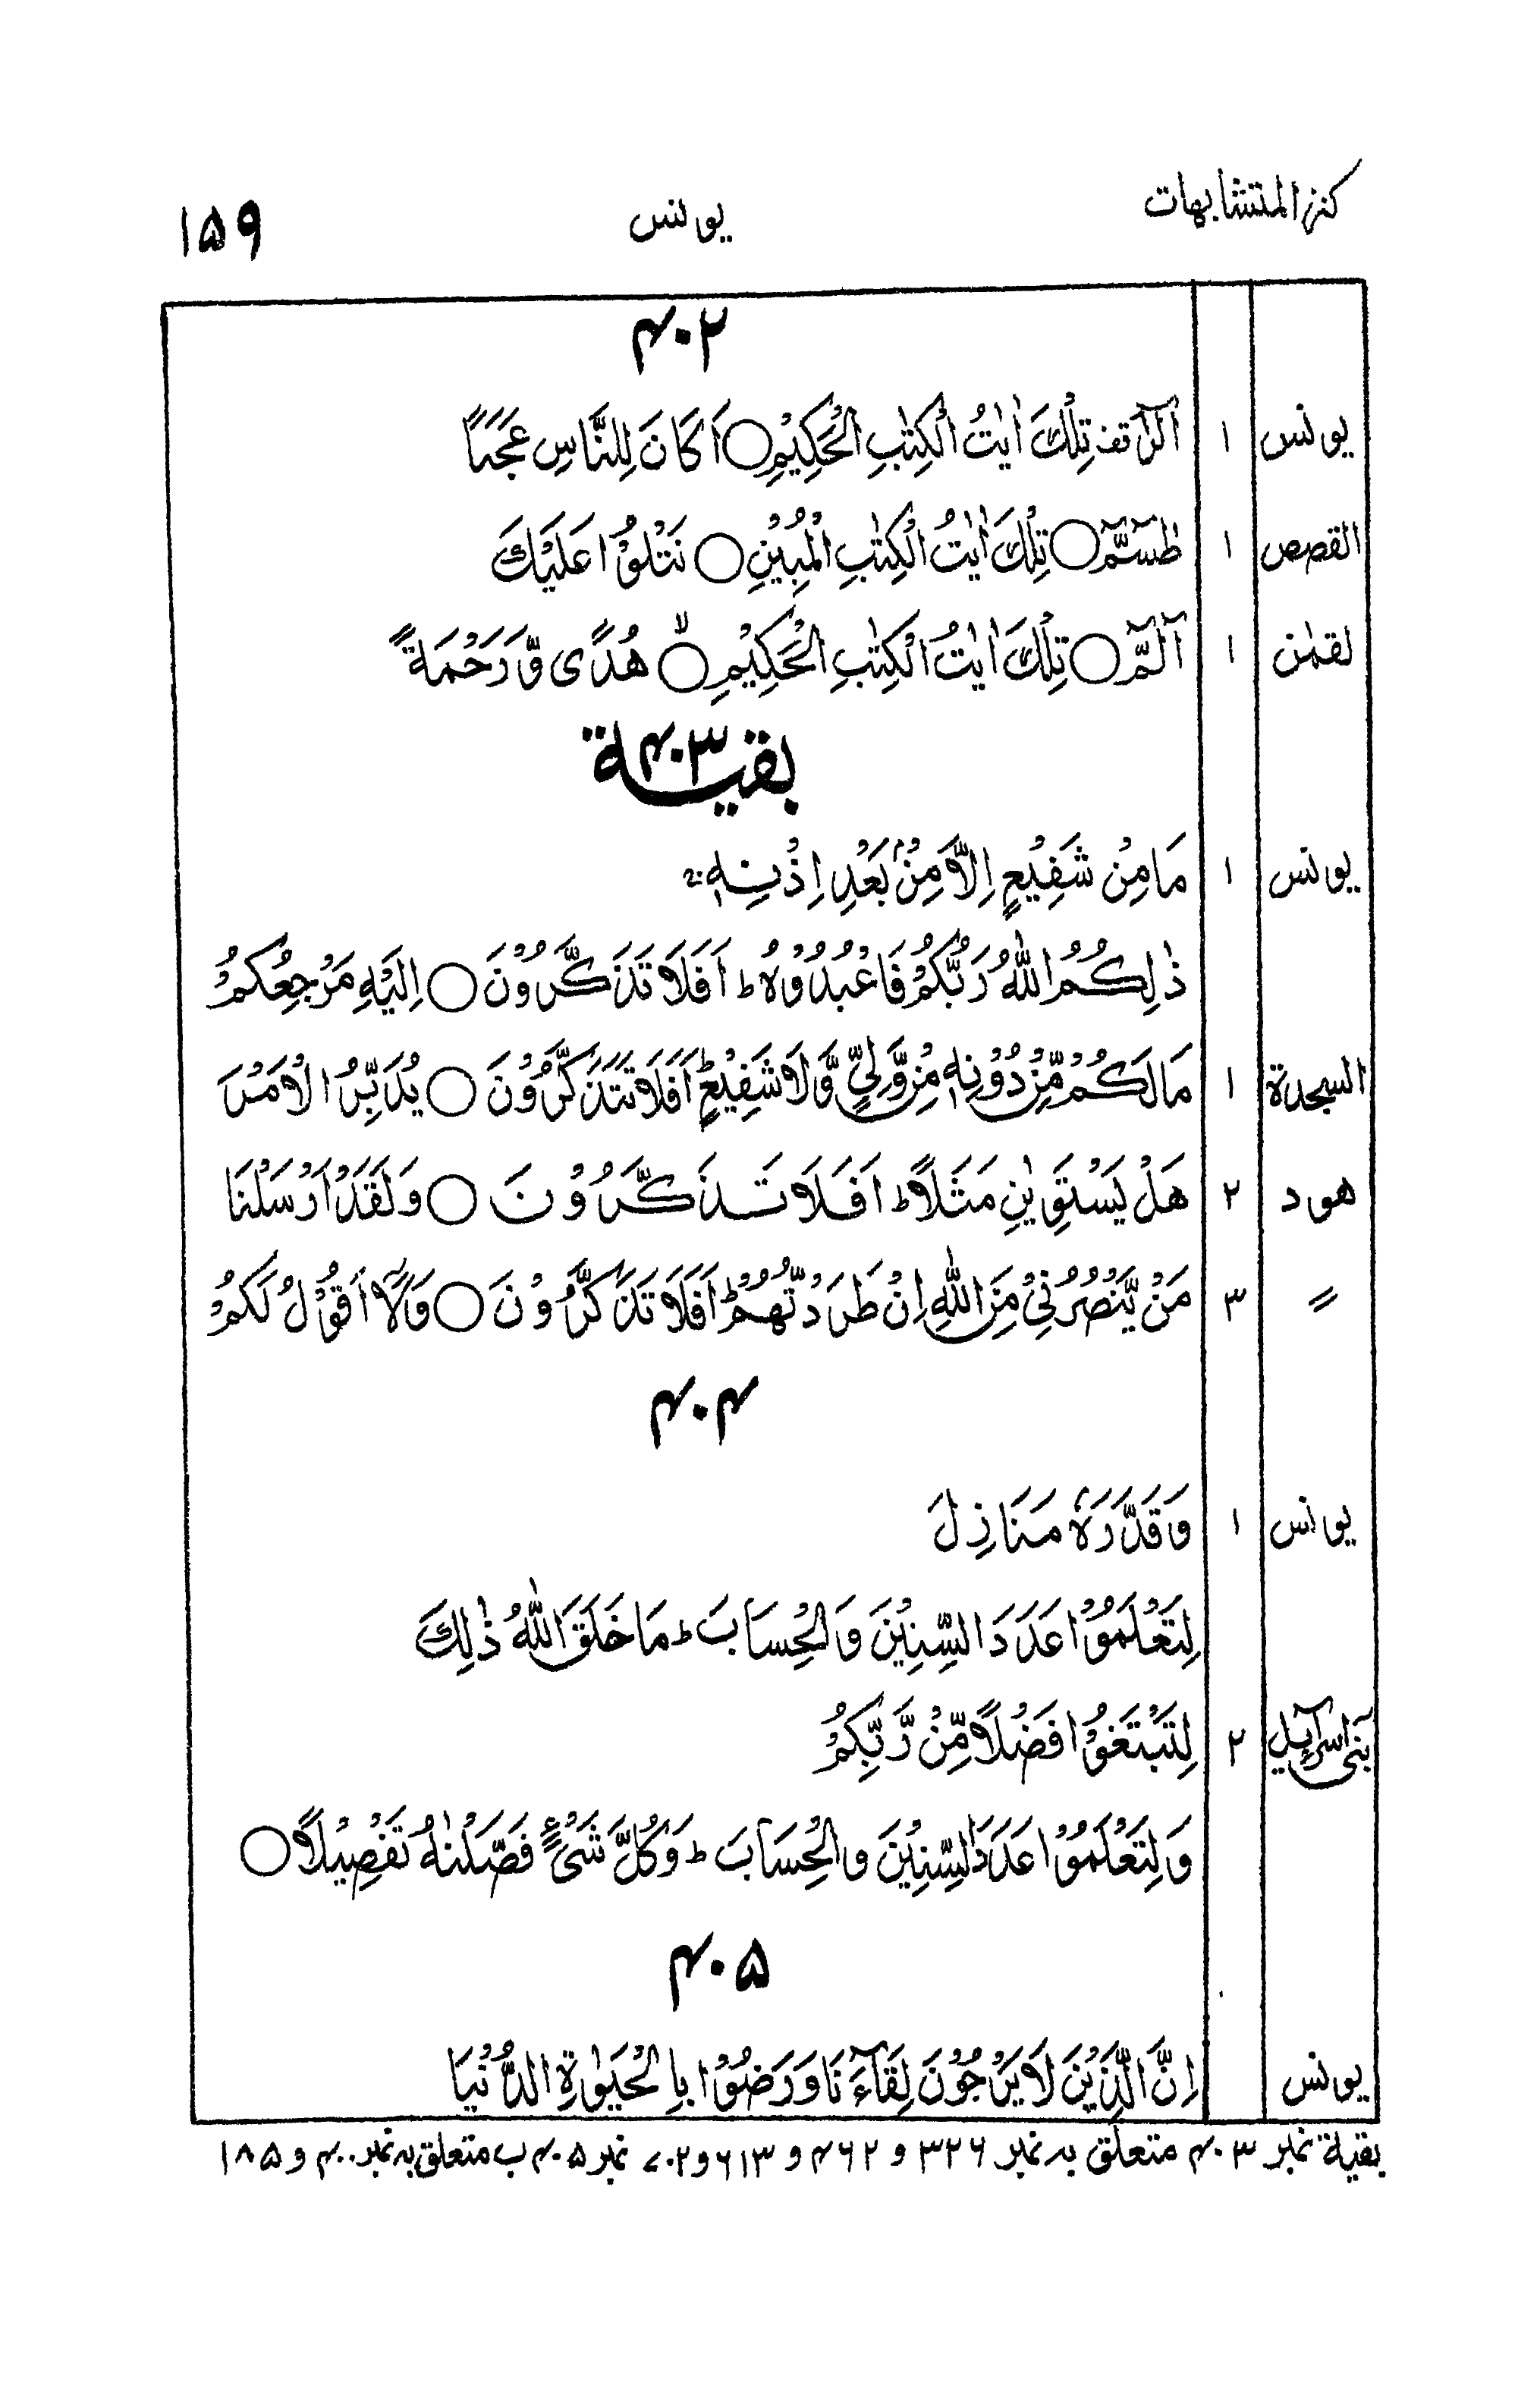 كنز المتشابهات
يونس
۱۵۹
۴۰۲
يونس ۱ الٓرٰ تف تِلْكَ اٰيٰتُ الْكِتٰبِ الْحَكِيْمِ ○ اَكَانَ لِلنَّاسِ عَجَبًا
القصص ۱ طٰسٓمّٓ ○ تِلْكَ اٰيٰتُ الْكِتٰبِ الْمُبِيْنِ ○ نَتْلُوْا عَلَيْكَ
لقمٰن ۱ الٓمّٓ ○ تِلْكَ اٰيٰتُ الْكِتٰبِ الْحَكِيْمِ ○ لا هُدًى وَّرَحْمَةً
بقية ۴۰۳
يونس ۱ مَا مِنْ شَفِيْعٍ اِلَّا مِنْۢ بَعْدِ اِذْنِهٖ
ذٰلِكُمُ اللّٰهُ رَبُّكُمْ فَاعْبُدُوْهُ ط اَفَلَا تَذَكَّرُوْنَ ○ اِلَيْهِ مَرْجِعُكُمْ
السجدة ۱ مَا لَكُمْ مِّنْ دُوْنِهٖ مِنْ وَّلِيٍّ وَّلَا شَفِيْعٍ ط اَفَلَا تَتَذَكَّرُوْنَ ○ يُدَبِّرُ الْاَمْرَ
هود ۲ هَلْ يَسْتَوِيٰنِ مَثَلًا ط اَفَلَا تَذَكَّرُوْنَ ○ وَلَقَدْ اَرْسَلْنَا
〃 ۳ مَنْ يَّنْصُرُنِيْ مِنَ اللّٰهِ اِنْ طَرَدْتُّهُمْ ط اَفَلَا تَذَكَّرُوْنَ ○ وَلَآ اَقُوْلُ لَكُمْ
۴۰۴
يونس ۱ وَقَدَّرَهٗ مَنَازِلَ
لِتَعْلَمُوْا عَدَدَ السِّنِيْنَ وَالْحِسَابَ ط مَا خَلَقَ اللّٰهُ ذٰلِكَ
بنى اسرآءيل ۲ لِتَبْتَغُوْا فَضْلًا مِّنْ رَّبِّكُمْ
وَلِتَعْلَمُوْا عَدَدَ السِّنِيْنَ والْحِسَابَ ط وَكُلَّ شَيْءٍ فَصَّلْنٰهُ تَفْصِيْلًا ○
۴۰۵
يونس اِنَّ الَّذِيْنَ لَا يَرْجُوْنَ لِقَآءَنَا وَرَضُوْا بِالْحَيٰوةِ الدُّنْيَا
بقية نمبر ۴۰۳ متعلق به نمبر ۳۲۶ و ۴۶۲ و ۶۱۳ و ۷۰۲ نمبر ۴۰۵ ب متعلق به نمبر ۴۰۰ و ۱۸۵